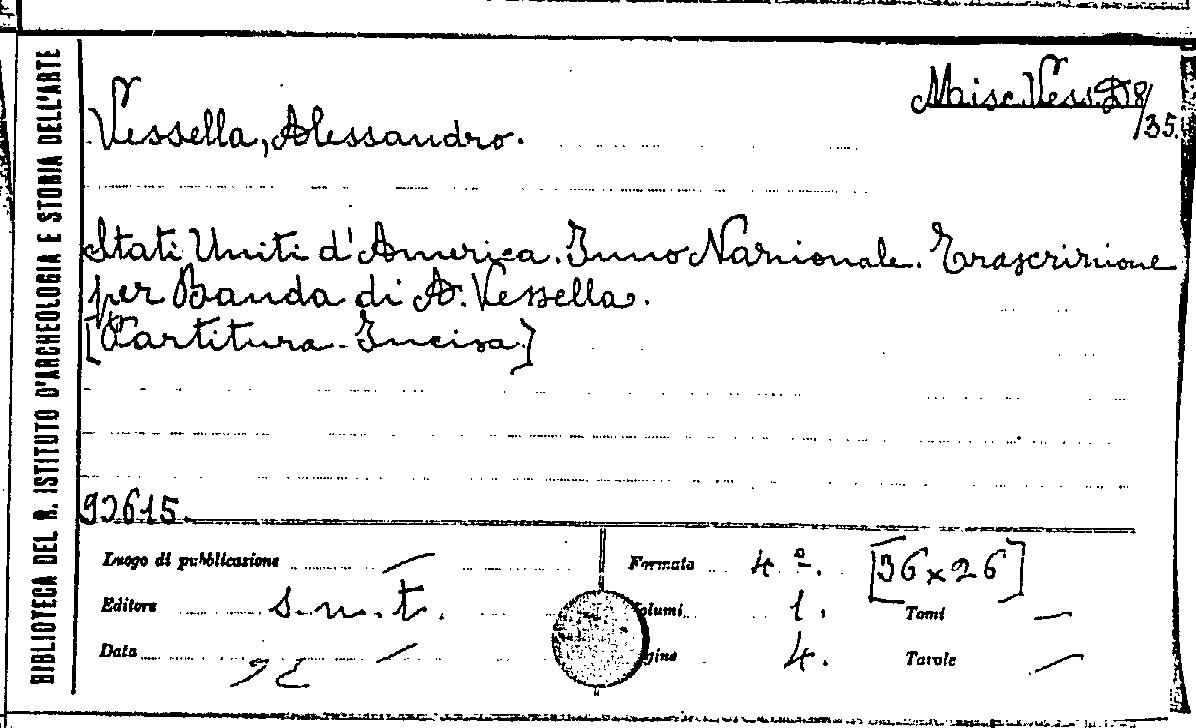 BIBLIOTECA DEL R. ISTITUTO D'ARCHEOLOGIA E STORIA DELL'ARTE
Misc. Vess. D 8/35.
Vessella, Alessandro.
Stati Uniti d'America. Inno Nazionale. Trascrizione
per Banda di A. Vessella.
[Partitura Incisa]
93615.
Luogo di pubblicazione —
Formato 4º. [36 x 26]
Editore s.n.t.
olumi 1. Tomi —
Data —
gine 4. Tavole —